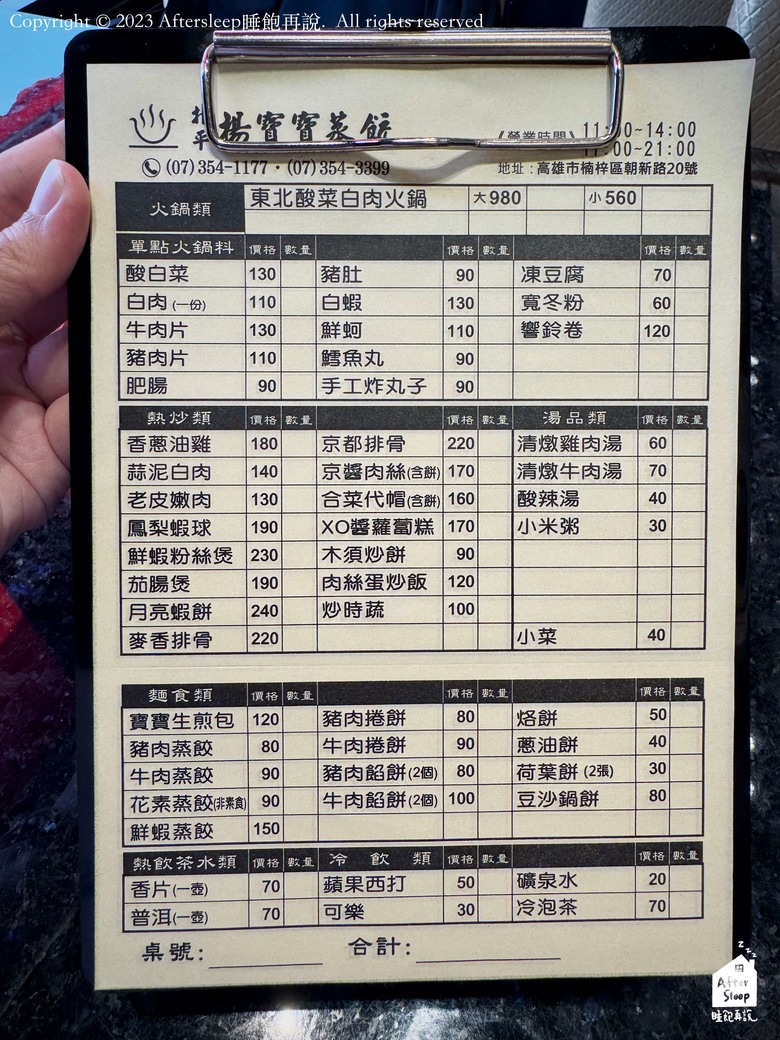 Copyright © 2023 Aftersleep睡飽再說. All rights reserved
楊寶寶蒸餃
《營業時間》 11:00~14:00
:00~21:00
(07)354-1177・(07)354-3399
地址：高雄市楠梓區朝新路20號
火鍋類 東北酸菜白肉火鍋 大980 小560
單點火鍋料 價格 數量 價格 數量 價格 數量
酸白菜 130 豬肚 90 凍豆腐 70
白肉(一份) 110 白蝦 130 寬冬粉 60
牛肉片 130 鮮蚵 110 響鈴卷 120
豬肉片 110 鱈魚丸 90
肥腸 90 手工炸丸子 90
熱炒類 價格 數量 價格 數量 湯品類 價格 數量
香蔥油雞 180 京都排骨 220 清燉雞肉湯 60
蒜泥白肉 140 京醬肉絲(含餅) 170 清燉牛肉湯 70
老皮嫩肉 130 合菜代帽(含餅) 160 酸辣湯 40
鳳梨蝦球 190 XO醬蘿蔔糕 170 小米粥 30
鮮蝦粉絲煲 230 木須炒餅 90
茄腸煲 190 肉絲蛋炒飯 120
月亮蝦餅 240 炒時蔬 100
麥香排骨 220 小菜 40
麵食類 價格 數量 價格 數量 價格 數量
寶寶生煎包 120 豬肉捲餅 80 烙餅 50
豬肉蒸餃 80 牛肉捲餅 90 蔥油餅 40
牛肉蒸餃 90 豬肉餡餅(2個) 80 荷葉餅(2張) 30
花素蒸餃(非素食) 90 牛肉餡餅(2個) 100 豆沙鍋餅 80
鮮蝦蒸餃 150
熱飲茶水類 價格 數量 冷飲類 價格 數量 價格 數量
香片(一壺) 70 蘋果西打 50 礦泉水 20
普洱(一壺) 70 可樂 30 冷泡茶 70
桌號： 合計：
z z z
After
Sleep
睡飽再說